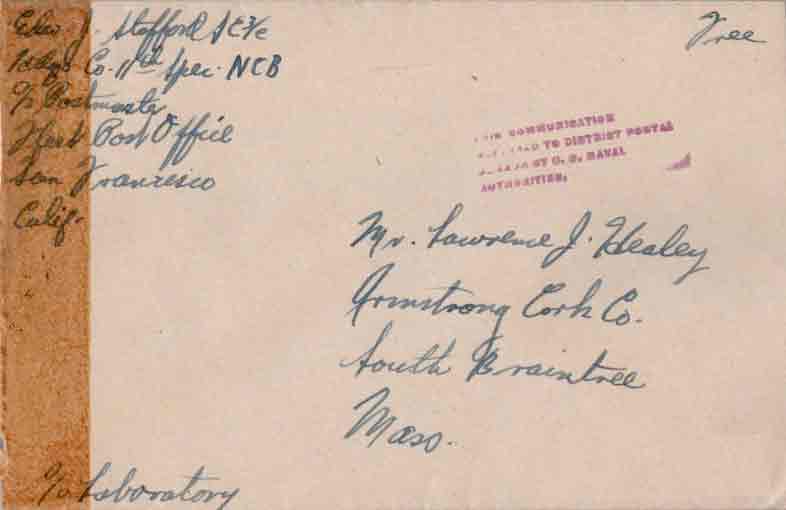 Edw. J. Stafford S 2/c
Hdqs Co. 11th Spec. NCB
c/o Postmaster
Fleet Post Office
San Francisco
Calif.
Free
COMMUNICATION
TO DISTRICT POSTAL
BY U. S. NAVAL
AUTHORITIES.
Mr. Lawrence J. Healey
Armstrong Cork Co.
South Braintree
Mass.
c/o Laboratory